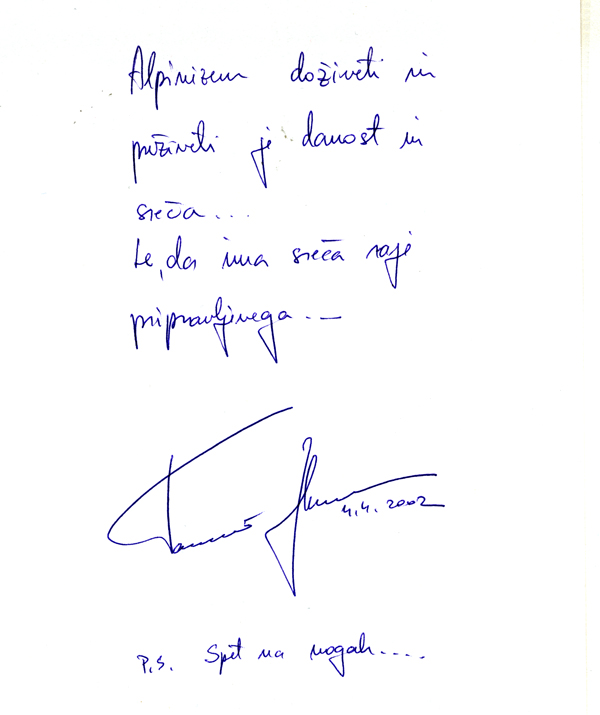 Alpinizem doživeti in
preživeti je danost in
sreča...
Le, da ima sreča raje
pripravljenega...
4.4.2002
P.S. Spet na nogah....